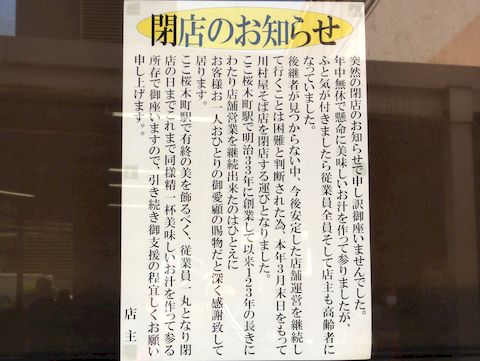 閉店のお知らせ
突然の閉店のお知らせで申し訳御座いませんでした。
年中無休で懸命に美味しいお汁を作って参りましたが、
ふと気が付きましたら従業員全員そして店主も高齢者に
なっていました。
後継者が見つからない中、今後安定した店舗運営を継続し
て行くことは困難と判断された為、本年3月末日をもって
川村屋そば店を閉店する運びとなりました。
ここ桜木町駅で明治33年に創業して以来123年の長きに
わたり店舗営業を継続出来たのはひとえに
お客様お一人おひとりの御愛顧の賜物だと深く感謝致して
居ります。
ここ桜木町駅で有終の美を飾るべく、従業員一丸となり閉
店の日までこれまで同様精一杯美味しいお汁を作って参る
所存で御座いますので、引き続き御支援の程宜しくお願い
申し上げます。。
店主